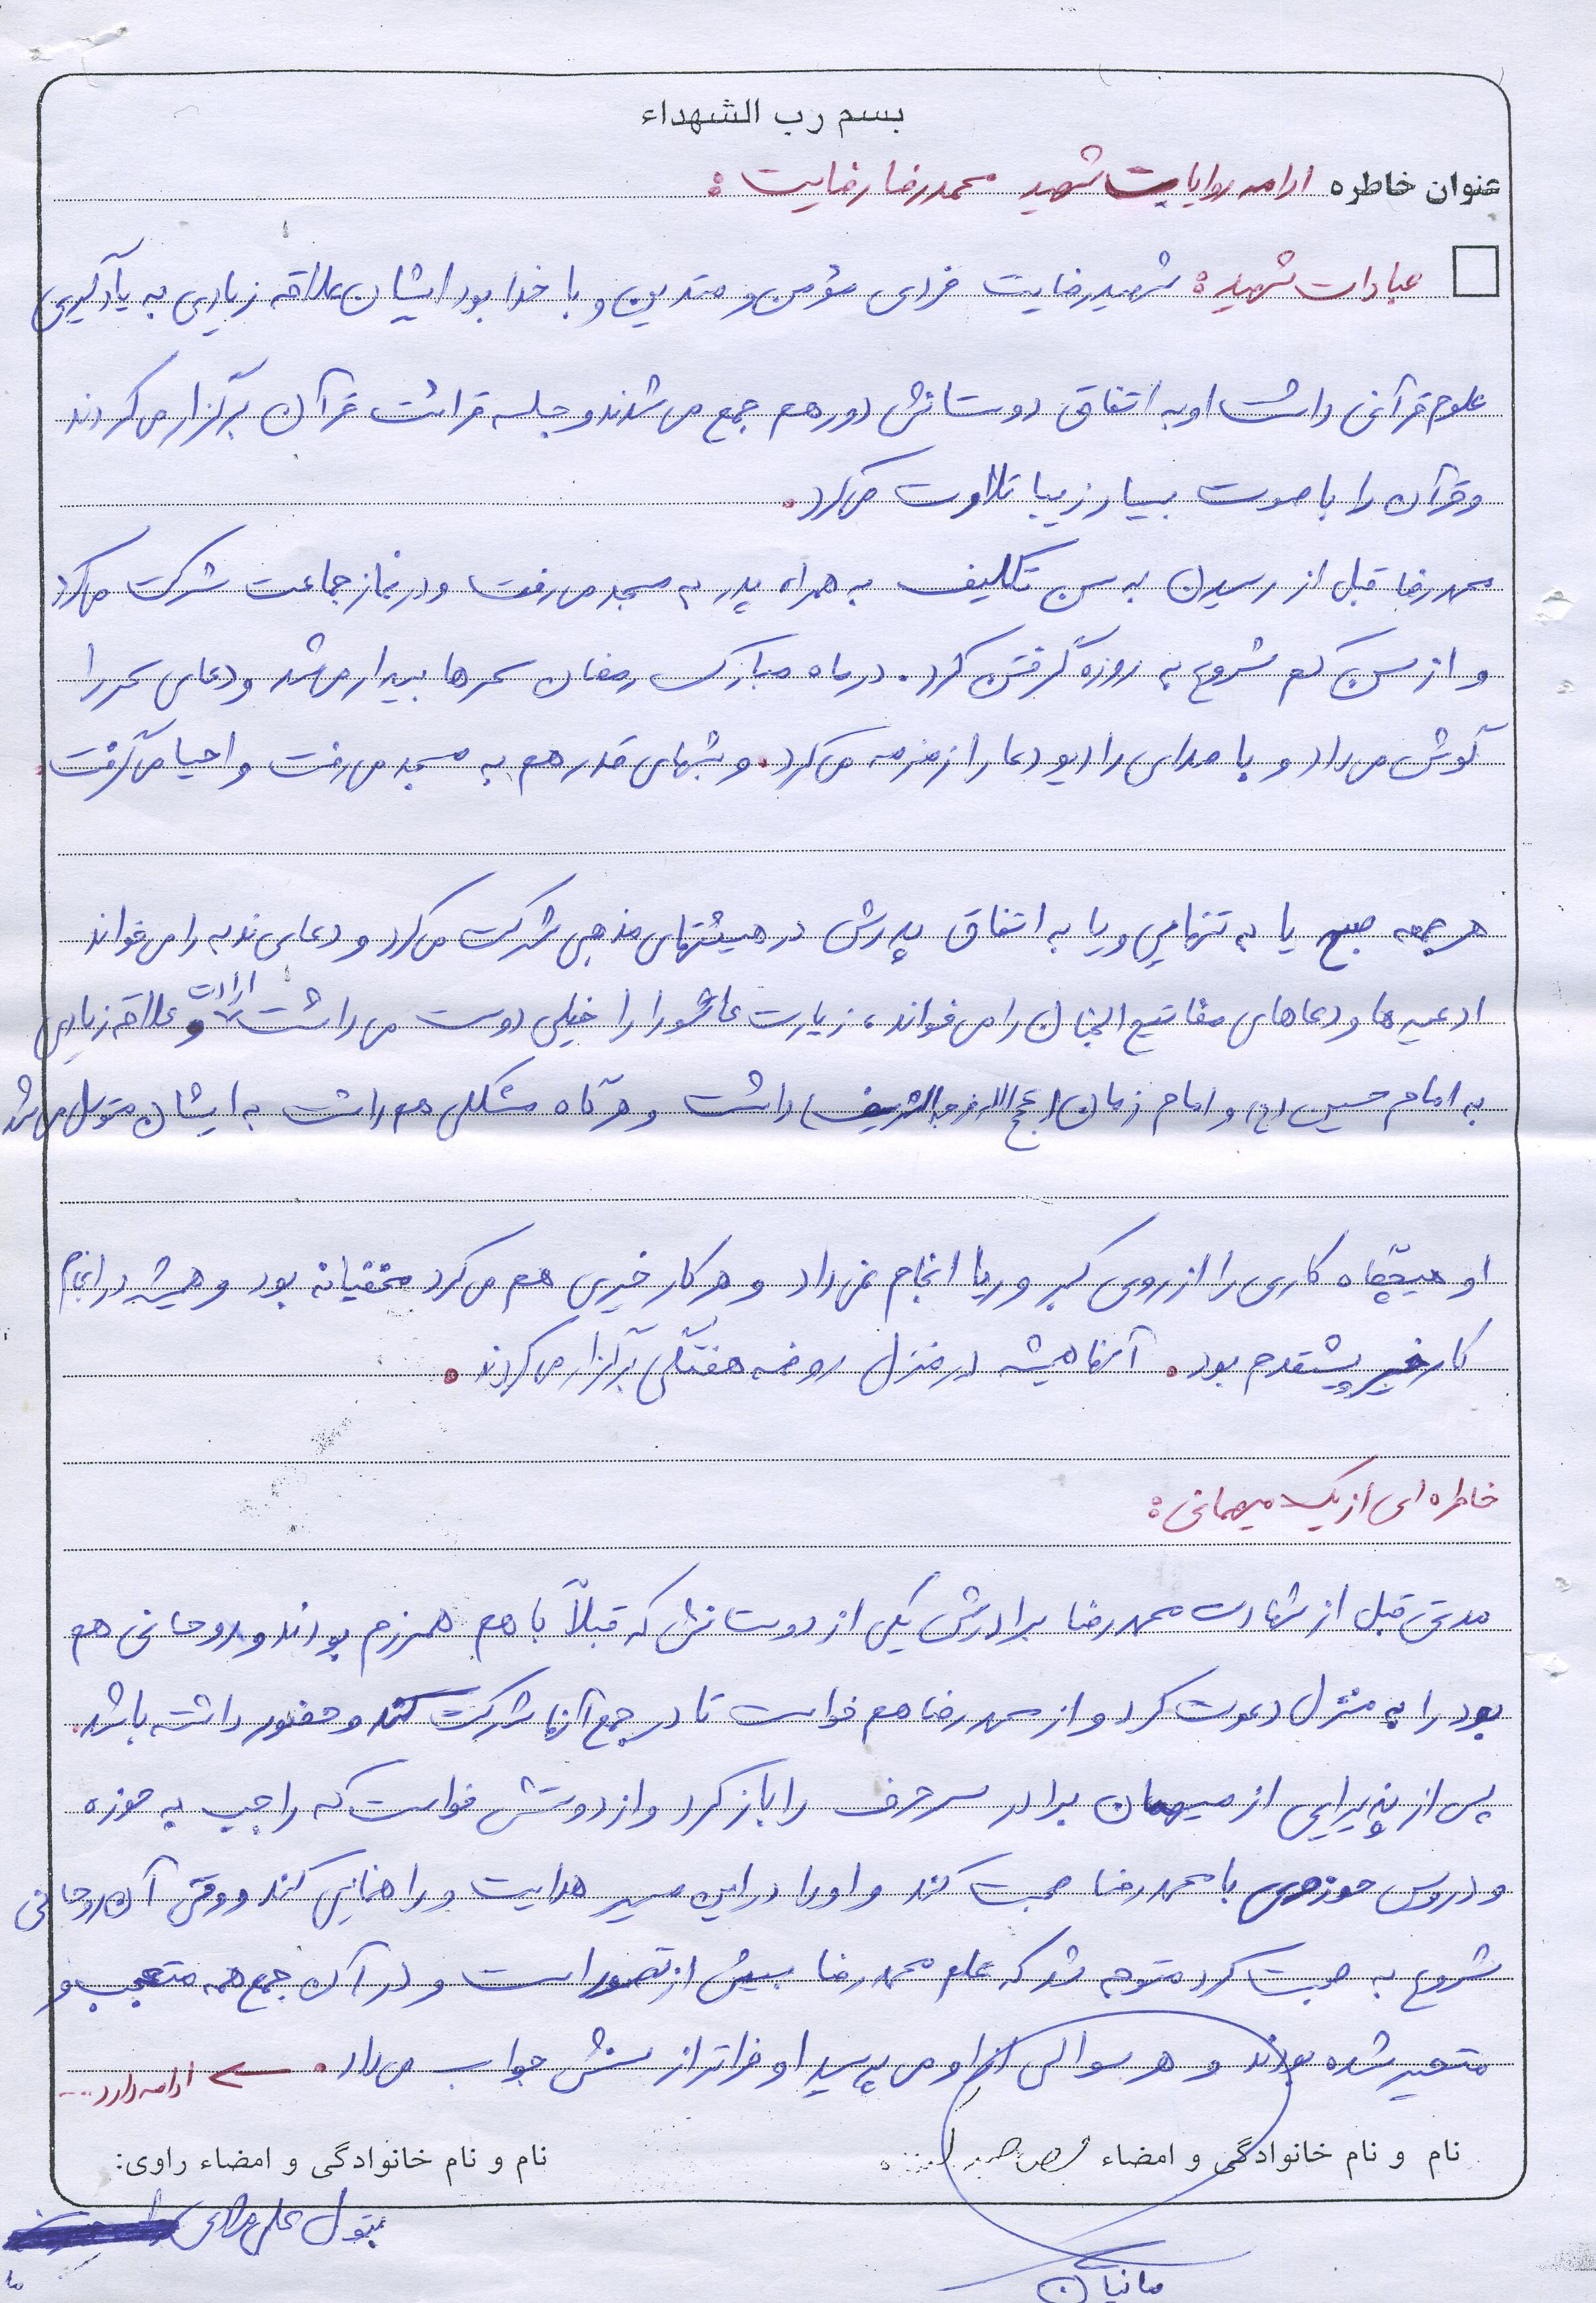 بسم رب الشهداء
عنوان خاطره ادامه روایات شهید محمدرضا رضایت :
عبادات شهید : شهید رضایت فردی مؤمن و متدین و با خدا بود ایشان علاقه زیادی به یادگیری
علوم قرآنی داشت او به اتفاق دوستانش دور هم جمع می شدند و جلسه قرائت قرآن برگزار می کردند
و قرآن را با صوت بسیار زیبا تلاوت می کرد.
محمدرضا قبل از رسیدن به سن تکلیف به همراه پدر به مسجد می رفت و در نماز جماعت شرکت می کرد
و از سن کم شروع به روزه گرفتن کرد. در ماه مبارک رمضان سحرها بیدار می شد و دعای سحر را
گوش می داد و با صدای رادیو دعا را زمزمه می کرد. و شبهای قدر هم به مسجد می رفت و احیا می گرفت.
هر جمعه صبح یا به تنهایی و یا به اتفاق پدرش در هیئتهای مذهبی شرکت می کرد و دعای ندبه را می خواند
ادعیه ها و دعاهای مفاتیح الجنان را می خواند، زیارت عاشورا را خیلی دوست می داشت ارادت و علاقه زیادی
به امام حسین (ع) و امام زمان (عج الله فرجه الشریف) داشت و هرگاه مشکلی هم داشت به ایشان متوسل می شد
او هیچگاه کاری را از روی کبر و ریا انجام نمی داد و هر کار خیری هم می کرد مخفیانه بود و همیشه در انجام
کار خیر پیشقدم بود. آنها همیشه در منزل روضه هفتگی برگزار می کردند.
خاطره ای از یک میهمانی :
مدتی قبل از شهادت محمدرضا برادرش یکی از دوستانش که قبلاً با هم همرزم بودند و روحانی هم
بود را به منزل دعوت کرد و از محمدرضا هم خواست تا در جمع آنها شرکت کند و حضور داشته باشد.
پس از پذیرایی از میهمان برادر سر حرف را باز کرد و از دوستش خواست که راجب به حوزه
و دروس حوزوی با محمدرضا صحبت کند و او را در این مسیر هدایت و راهنمایی کند و وقتی آن روحانی
شروع به صحبت کرد متوجه شد که علم محمدرضا بیش از تصور است و در آن جمع همه متعجب و
متحیر شده بودند و هر سوالی از او می پرسید او فراتر از سنش جواب می داد. ← ادامه دارد....
نام و نام خانوادگی و امضاء
نام و نام خانوادگی و امضاء راوی:
بتول علی
مانیان